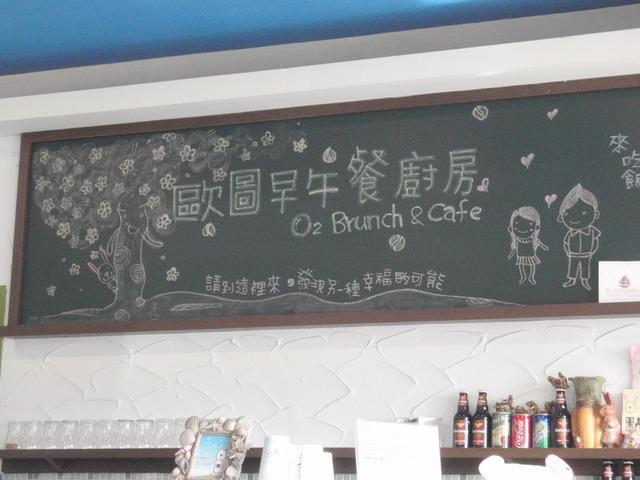 歐圖早午餐廚房
O2 Brunch & Cafe
請到這裡來,發現另一種幸福的可能
來吃飯
Coca-Cola